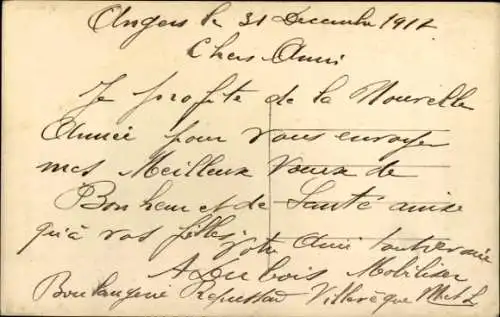 Angers le 31 Decembre 1917
Chers Amis
Je profite de la Nouvelle
Année pour vous envoyer
mes Meilleux Voeux de
Bonheur et de Santé ainsi
qu'à vos filles, votre Ami
A Dubois Mobilisé
Boulangerie Villevêque